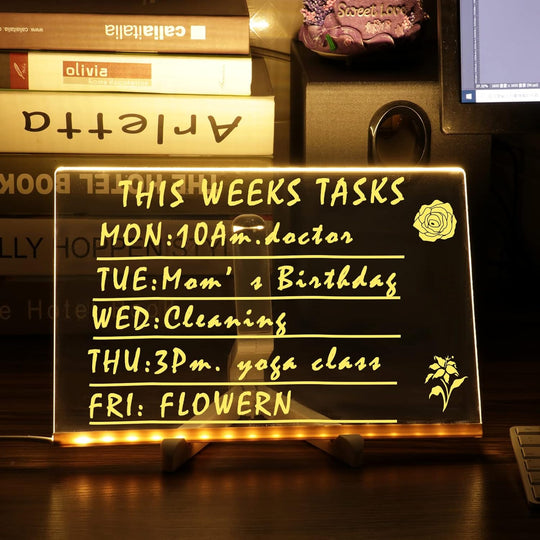 Sweet Love
calliaitalia
calliaitalia
olivia
Arletta
THE HOTEL BOOK
LLY HOPPEN STY
e Hote
THIS WEEKS TASKS
MON:10Am.doctor
TUE:Mom's Birthday
WED:Cleaning
THU:3Pm. yoga class
FRI: FLOWERN